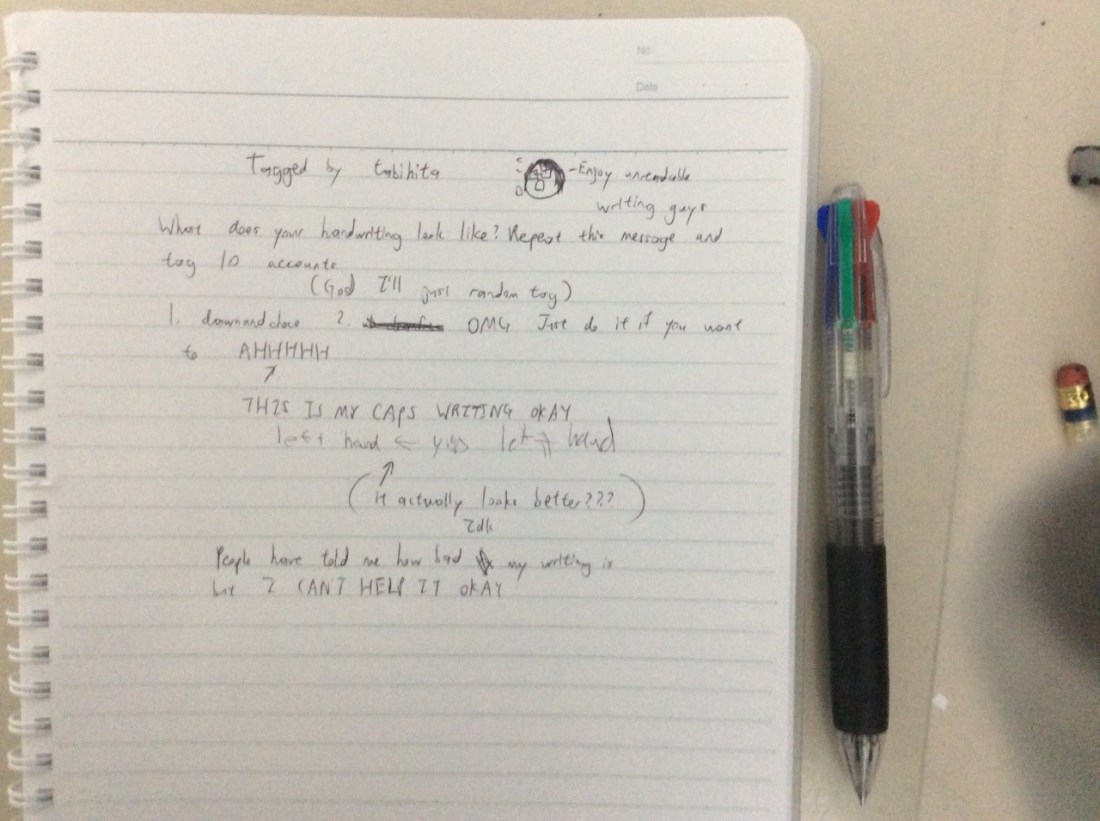 No.
Date
Tagged by tabihita
-Enjoy unreadable
writing guys
What does your handwriting look like? Repeat this message and
tag 10 accounts
(God I'll just random tag)
1. 2. OMG Just do it if you want
to AHHHHH
THIS IS MY CAPS WRITING OKAY
left hand ← yup left hand
(it actually looks better???)
Idk
People have told me how bad my writing is
but I CANT HELP IT OKAY